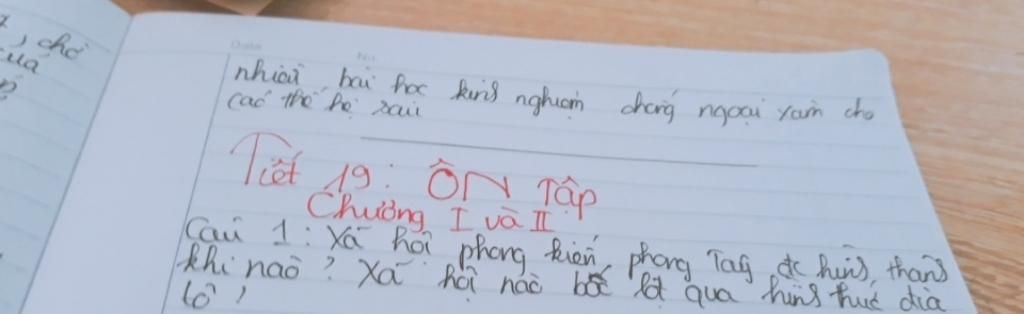 , chở
của
Date
No.
nhiều bài học kinh nghiệm chống ngoại xâm cho
các thế hệ sau
Tiết 19: ÔN TẬP
Chương I và II
Câu 1: Xã hội phong kiến phong Tây đc hình thành
khi nào? Xã hội nào bóc lột qua hình thức địa
tô!